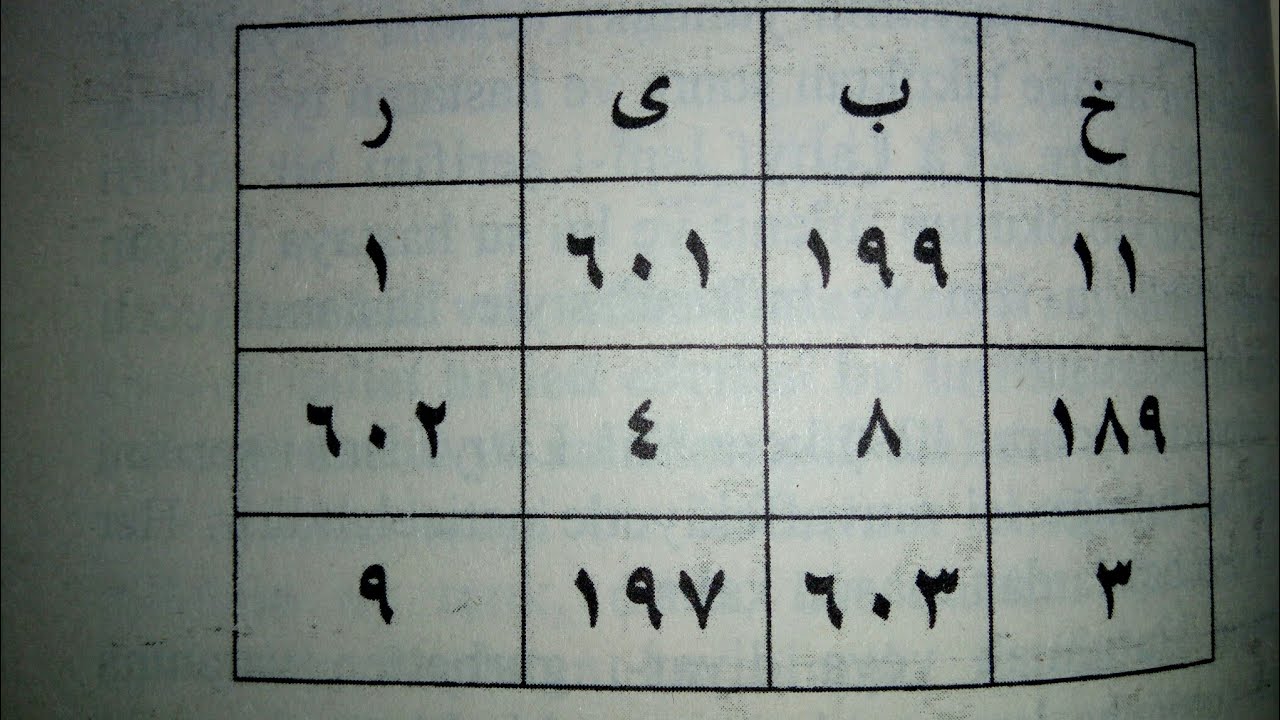 خ ب ى ر
١١ ١٩٩ ٦٠١ ١
١٨٩ ٨ ٤ ٦٠٢
٣ ٦٠٣ ١٩٧ ٩